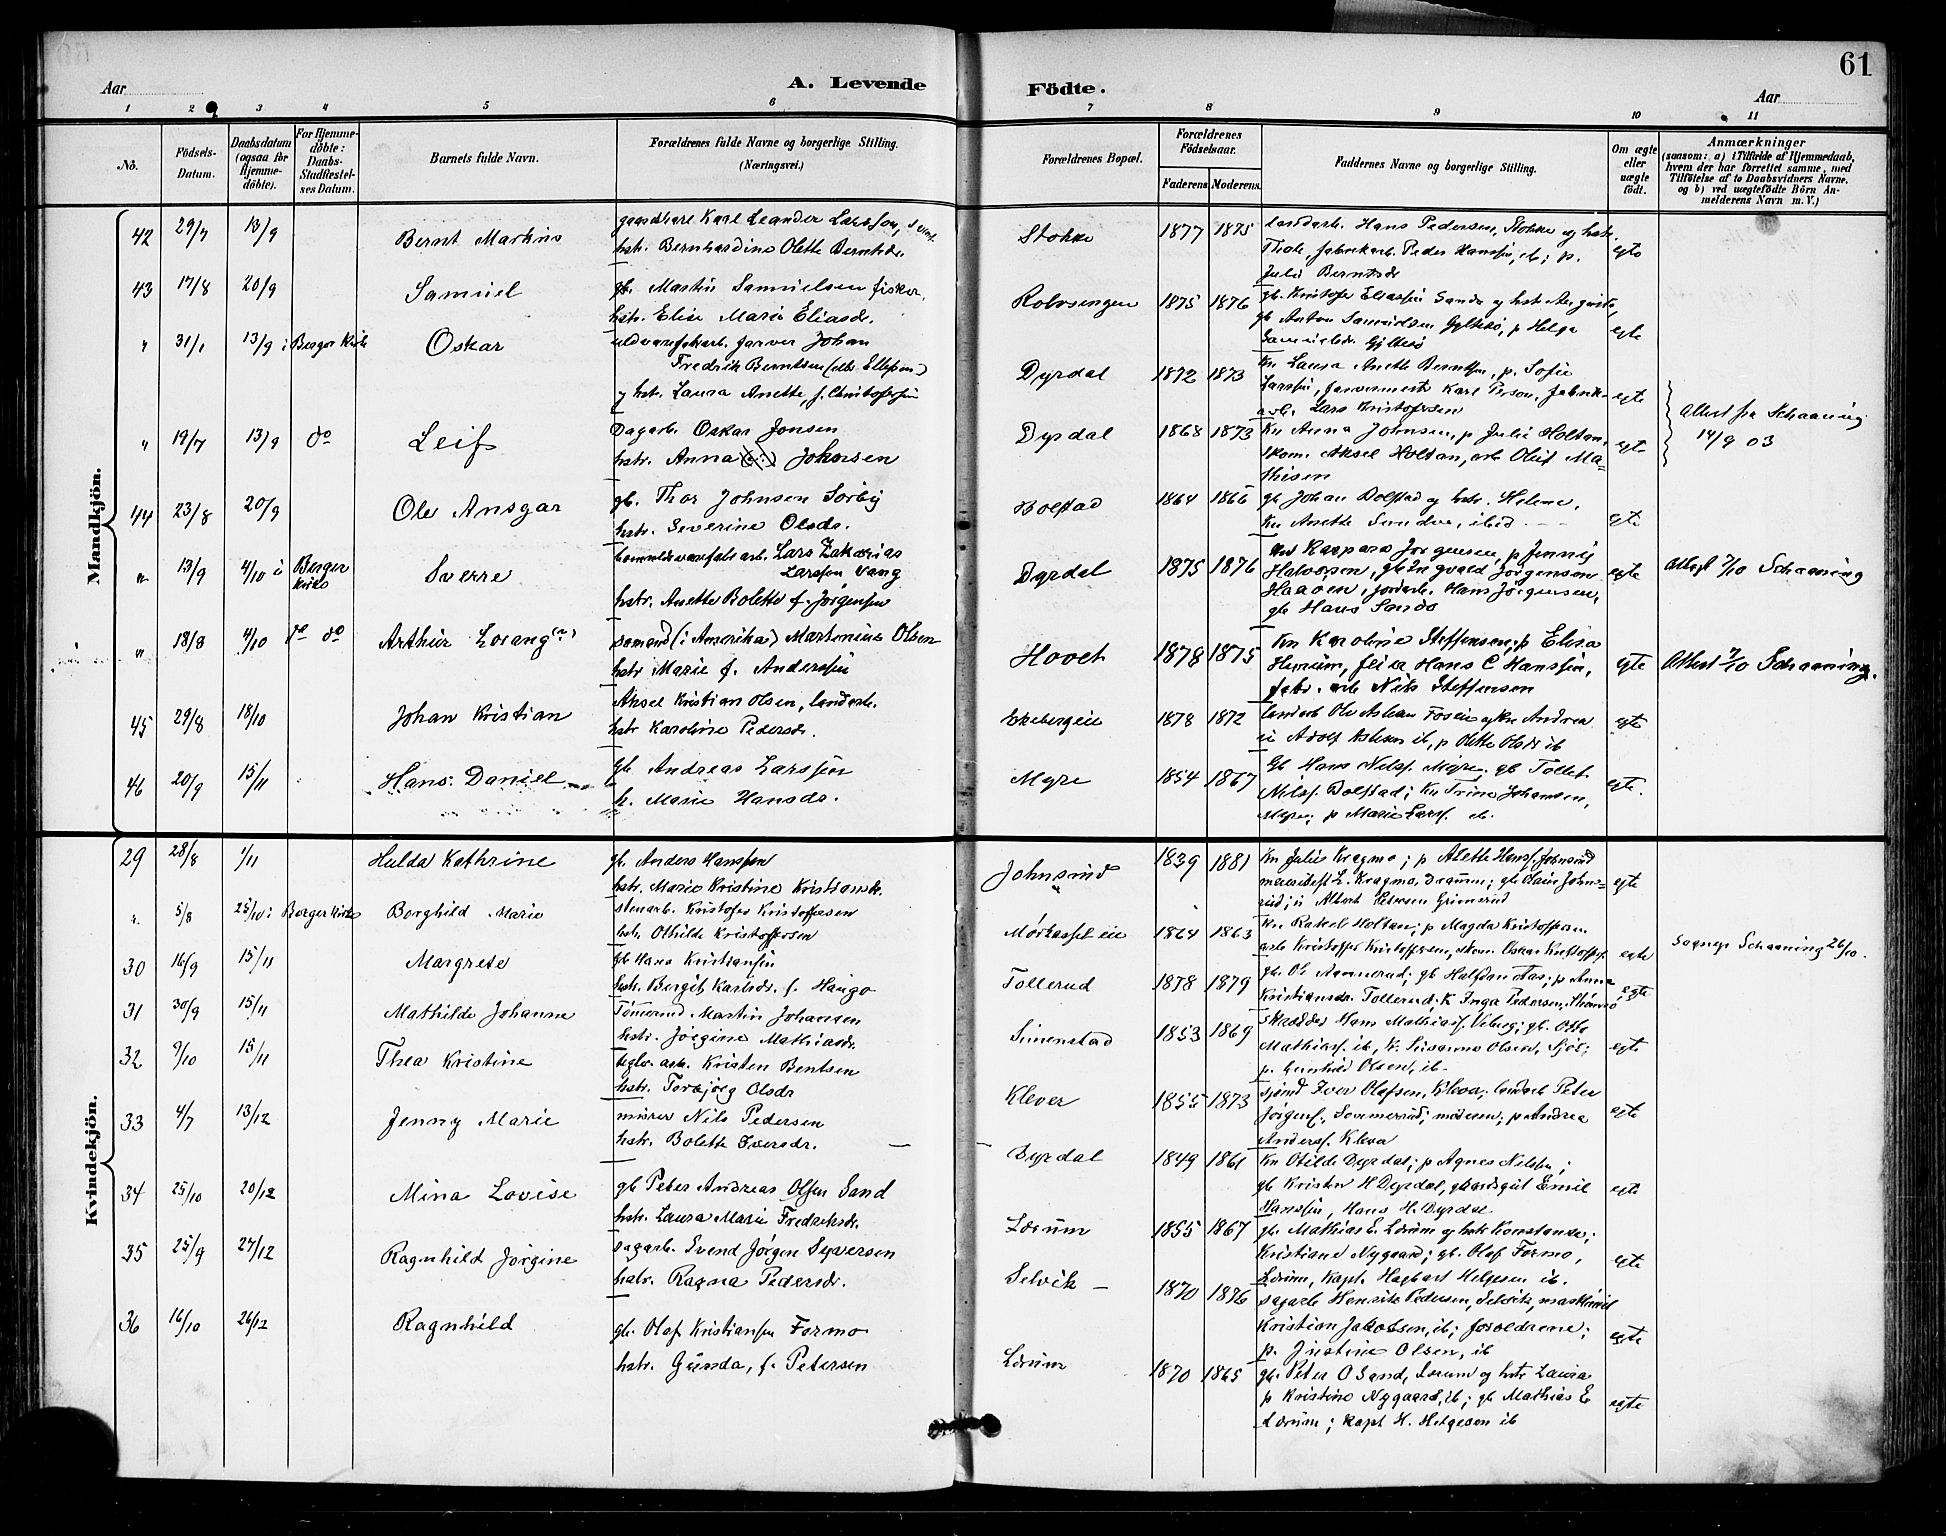 61
Aar
A. Levende
Födte.
Aar
1 2 3 4 5 6 7 8 9 10 11
Nô.
Födsels-
Datum.
Daabsdatum
(ogsaa for
Hjemme-
döbte).
For Hjemme-
döbte:
Daabs-
Stadfæstel-
ses Datum.
Barnets fulde Navn.
Forældrenes fulde Navne og borgerlige Stilling.
(Næringsvei.)
Forældrenes Bopæl.
Forældrenes
Födselsaar.
Faderens Moderens.
Faddernes Navne og borgerlige Stilling.
Om ægte
eller
uægte
födt.
Anmærkninger
(saasom: a) i Tilfælde af Hjemmedaab,
hvem der har forrettet samme, med
Tilföielse af to Daabsvidners Navne.
og b) ved uegtefödte Börn An-
melderens Navn m. V.)
Mandkjön.
42 29/7 13/9 Bernt Markus
gaardbare Karl Leander Larsson,
hstr. Bernhardine Olette Berntsdr.
Stokke 1877 1875
Hans Pedersen, Stokke og hstr.
Thale, fabrikarb. Peder Hanssen, ib; p.
Juli Berntsdr
egte
43 17/8 20/9 Samuel
gb. Martin Samuelsen fisker,
hstr. Elise Marie Eliasdr.
1875 1876
gb. Kristofer Eliassen Sande og hstr Augusta,
gb Anton Samuelsen, p Helga
egte
" 31/1 13/9 i Berger Kirke Oskar
uldvarefabarb. farver Johan
Fredrik Berntsen (eller Ellefsen)
og hstr. Laura Anette, f. Christofersen
Dyrdal 1872 1873
Kn Laura Anette Berntsen, p. Sofie
Larssen, farvermest Karl Person, fabrik-
arb. Lars Kristofersen
egte
" 19/7 13/9 do Leif
Dagarb. Oskar Jonsen
hstr. Anna Johnsen
Dyrdal 1868 1873
Kn Anna Johnsen, p Julie Holtan,
skom. Aksel Holtan, arb Oluf Ma-
thisen
egte
Attest fra Schaaning
14/9 03
44 23/8 20/9 Ole Ansgar
gb. Thor Johnsen Sørby
hstr. Severine Olsdr.
Bolstad 1864 1866
gb Johan Bolstad og hstr. Helene,
Kn Anette Sundve, ibid
egte
" 13/9 4/10 i Berger
Kirke Sverre
Lars Zakarias
Larssen Vang
hstr. Anette Bolette f. Jørgensen
Dyrdal 1875 1876
Kaspara Jørgensen, p Jenny
Halvorsen, gb Ingvald Jørgensen
Haaøen, jordarb. Hans Jørgensen,
gb Hans Sando
egte
Attest 7/10 Schaaning
" 18/8 4/10 do do Arthur Lorang
sømand (i Amerika) Martinius Olsen
hstr Marie f. Anderssen
Hovet 1878 1875
Kn Karoline Steffensen, p Elisa
Hans C Hanssen,
fabr. arb Nils Steffensen
egte
Attest 7/10 Schaaning.
45 29/8 18/10 Johan Kristian
Aksel Kristian Olsen, landarb.
hstr Karoline Pedersdr.
Ekebergeie 1878 1872
landarb Ole Aslesen Fossen og Kn Andrea
u Adolf Aslesen ib, p Olette Olsdr ib
egte
46 20/9 15/11 Hans Daniel
gb Andreas Larssen
h. Marie Hansdr.
Myre 1854 1867
Gb Hans Nilsf. Myre, gb Tollef
Nilsf. Bolstad; Kn Trine Johansen,
Myre; p Marie Larsf. ib.
egte.
Kvindekjön.
29 28/8 1/11 Hulda Kathrine
gb. Anders Hanssen
hstr. Marie Kristine Kristiansdr.
Johnsrud 1839 1881
Kn Julie Kragmo; p Anette Hansf. Johnsrud
L. Kragmo, Drammen; gb Olaus Johns-
rud; u Albert Petersen Grimsrud
egte
" 5/8 25/10 i Berger Kirke Borghild Marie
stenarb. Kristofer Kristoffersen
hstr. Othilde Kristoffersen
Mørkasseteie 1864 1863
Kn. Rakel Holtan; p Magda Kristoffersen
arb Kristoffer Kristoffersen, skom. Oskar Kristoffers.
egte
sognep Schaaning 26/10.
30 16/9 15/11 Margrete
gb Hans Kristiansen
hstr. Bergit Karlsdr. f. Haugo
Tollerud 1878 1879
gb. Ol Aannerud; gb Halfdan Aas; p Anna
Kristiansdr. Tollerud; K Inga Pedersen, Strømsø
egte
31 30/9 15/11 Mathilde Johanne
Tømmermd Martin Johansen
hstr. Jørgine Mathiasdr.
Simenstad 1853 1869
skrædder Hans Mathiasf. Viborg; gb. Otto
Mathiasf. ib, K. Susanne Olsen, Sjøl;
p. Gunhild Olsen, ib.
egte
32 9/10 15/11 Thea Kristine
teglv. arb. Kristen Bentsen
hstr. Torbjørg Olsdr
Klever 1855 1873
sjømd Iver Olafsen, Kleva, landarb Peter
Jørgensf. Sommerrud; moderen; p Andrea
Andersf. Kleva
egte
33 4/7 13/12 Jenny Marie
murer Nils Pedersen
hstr. Bolette Iversdr.
Dyrdal 1849 1861
Kn Otilde Dyrdal; p Agnes Nilssen;
gb Kristen H Dyrdal, Emil
Hanssen, Hans H. Dyrdal
egte
34 25/10 20/12 Mina Lovise
gb Peter Andreas Olsen Sand
hstr. Laura Marie Fredriksdr.
Lørum 1855 1867
gb. Mathias E. Lørum og hstr Konstanse;
Kristiane Nygaard; gb. Olaf Formo,
Lørum, Kapt. Hagbart Helgesen ib.
egte
35 25/9 27/12 Ragnhild Jørgine
sagarb. Svend Jørgen Syversen
hstr. Ragna Pedersdr.
Selvik 1870 1876
sagarb Henrik Pedersen, Selvik, maskinist
Kristian Jakobsen, ib; forældrene;
p. Justine Olsen, ib
egte
36 16/10 26/12 Ragnhild
gb. Olaf Kristiansen Formo
hstr. Gunda, f. Petersen
Lørum 1870 1865
gb. Peter O Sand, Lørum og hstr Laura
p Kristine Nygaard, ib; gb Mathias E
Lørum; Kapt H. Helgesen ib
egte